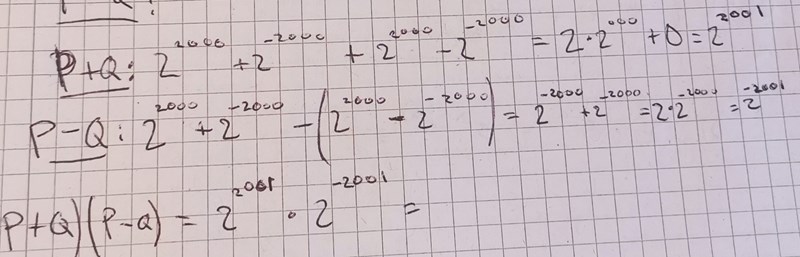 P+Q: 2^2000 + 2^-2000 + 2^2000 - 2^-2000 = 2·2^000 + 0 = 2^2001
P-Q: 2^2000 + 2^-2000 - (2^2000 - 2^-2000) = 2^-2000 + 2^-2000 = 2·2^-2000 = 2^-2001
P+Q)(P-Q) = 2^2001 · 2^-2001 =